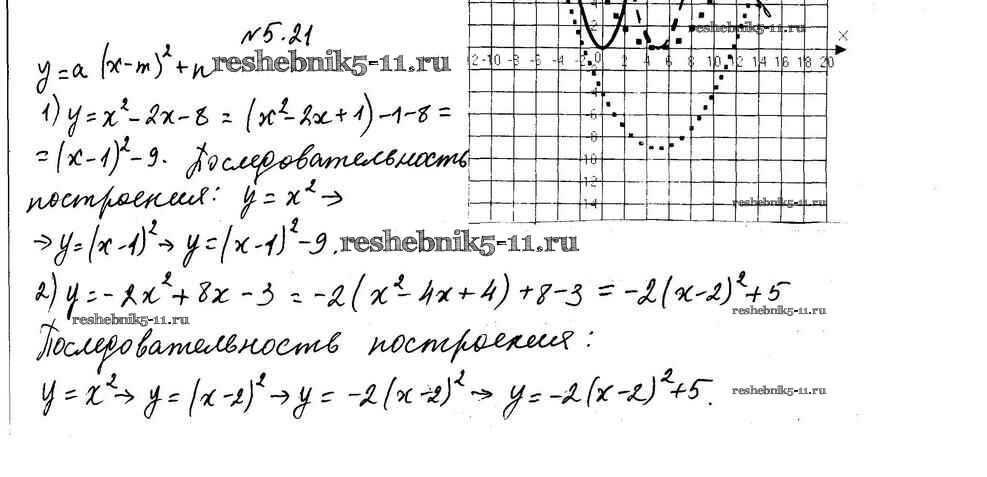 №5.21
y=a(x-m)²+n
reshebnik5-11.ru
1) y=x²-2x-8 = (x²-2x+1)-1-8=
=(x-1)²-9. Последовательность
построения: y=x²→
→y=(x-1)²→y=(x-1)²-9.
reshebnik5-11.ru
2) y=-2x²+8x-3 = -2(x²-4x+4)+8-3 = -2(x-2)²+5
reshebnik5-11.ru
Последовательность построения:
y=x²→y=(x-2)²→y=-2(x-2)²→y=-2(x-2)²+5.
reshebnik5-11.ru
x
-12 -10 -8 -6 -4 -2 0 2 4 6 8 10 12 14 16 18 20
-4
-6
-8
-10
-12
-14
reshebnik5-11.ru
reshebnik5-11.ru
reshebnik5-11.ru